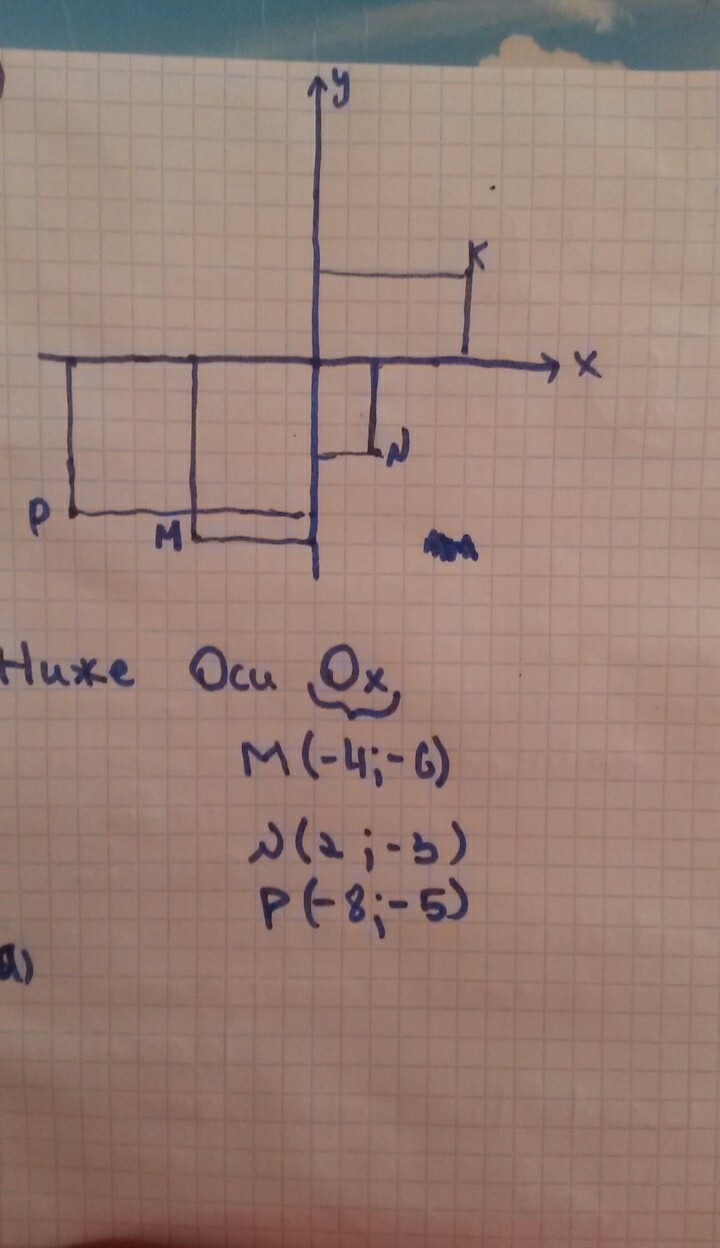 y
K
x
N
P
M
Ниже Оси Ox
M(-4;-6)
N(2;-3)
P(-8;-5)